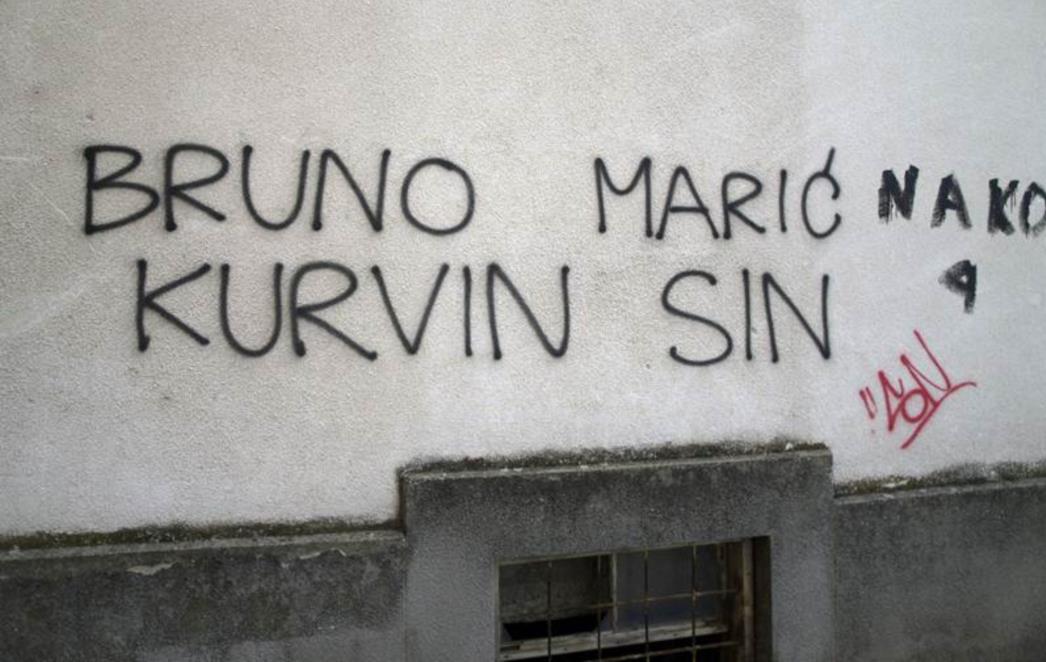 BRUNO MARIĆ
KURVIN SIN
NAKO